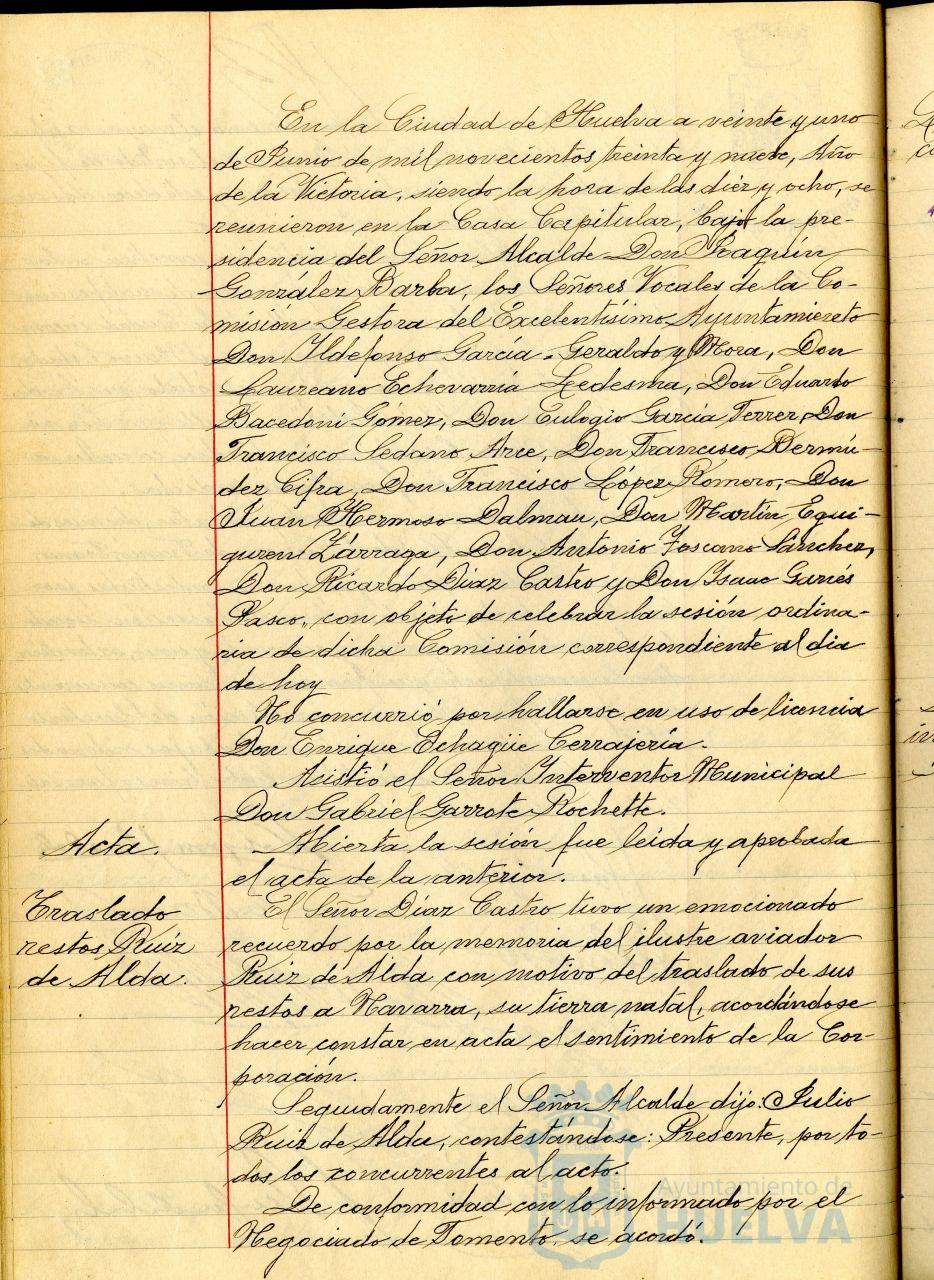 En la Ciudad de Huelva a veinte y uno
de Junio de mil novecientos treinta y nueve, Año
de la Victoria, siendo la hora de las diez y ocho, se
reunieron en la Casa Capitular, bajo la pre-
sidencia del Señor Alcalde Don Joaquín
González Barba, los Señores Vocales de la Co-
misión Gestora del Excelentísimo Ayuntamiento
Don Ildefonso García-Geraldo y Mora, Don
Laureano Echevarría Ledesma, Don Eduardo
Bacedoni Gomez, Don Eulogio García Ferrer, Don
Francisco Sedano Arce, Don Francisco Bermú-
dez Cifra, Don Francisco López Romero, Don
Juan Hermoso Dalmau, Don Martín Egui-
guren Zárraga, Don Antonio Toscano Sánchez,
Don Ricardo Díaz Castro y Don Isaac Garcés
Pasco, con objeto de celebrar la sesión ordina-
ria de dicha Comisión correspondiente al dia
de hoy
No concurrió por hallarse en uso de licencia
Don Enrique Echagüe Cerrajería.
Asistió el Señor Interventor Municipal
Don Gabriel Garrote Rochette.
Acta.
Abierta la sesión fue leida y aprobada
el acta de la anterior.
Traslado
restos Ruiz
de Alda.
El Señor Díaz Castro tuvo un emocionado
recuerdo por la memoria del ilustre aviador
Ruiz de Alda con motivo del traslado de sus
restos a Navarra, su tierra natal, acordándose
hacer constar en acta el sentimiento de la Cor-
poración.
Seguidamente el Señor Alcalde dijo: Julio
Ruiz de Alda, contestándose: Presente, por to-
dos los concurrentes al acto.
De conformidad con lo informado por el
Negociado de Fomento, se acordó:
Ayuntamiento de
HUELVA